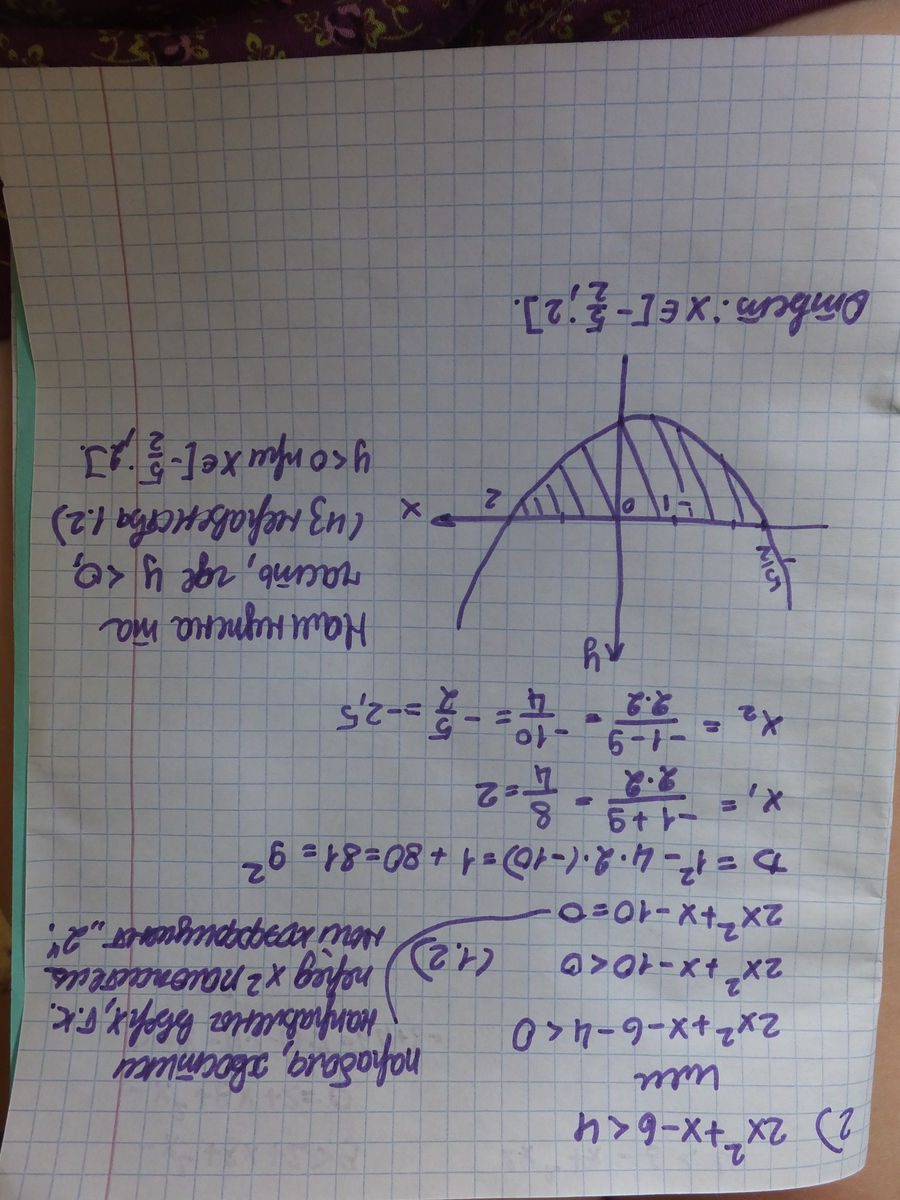 2) 2x²+x-6<4
или
2x²+x-6-4<0
2x²+x-10<0 (1.2)
2x²+x-10=0
парабола, хвостики
направлена вверх, т.к.
перед x² положитель
ный коэффициент „2".
D = 1²-4·2·(-10)=1+80=81=9²
x₁ = (-1+9)/(2·2) = 8/4 = 2
x₂ = (-1-9)/(2·2) = -10/4 = -5/2 = -2,5
y
-5/2
-1
0
2
x
Нам нужна та
часть, где y<0,
(из неравенства 1.2)
y<0 при x∈[-5/2; 2].
Ответ: x∈[-5/2; 2].